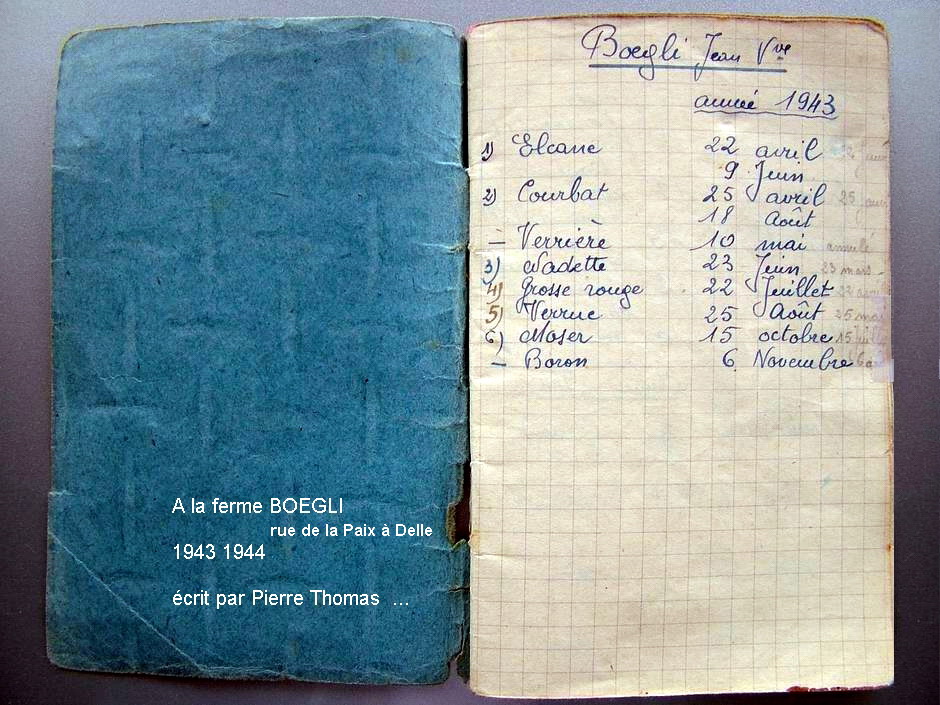 A la ferme BOEGLI
rue de la Paix à Delle
1943 1944
écrit par Pierre Thomas ...
Boegli Jean Vve
année 1943
1) Elcane 22 avril
9 Juin
2) Courbat 25 avril 25
18 Août
– Verrière 10 mai annulé
3) Nadette 23 Juin 23 mars
4) Grosse rouge 22 Juillet 22
5) Verrue 25 Août 25 mai
6) Moser 15 octobre 15
– Boron 6 Novembre